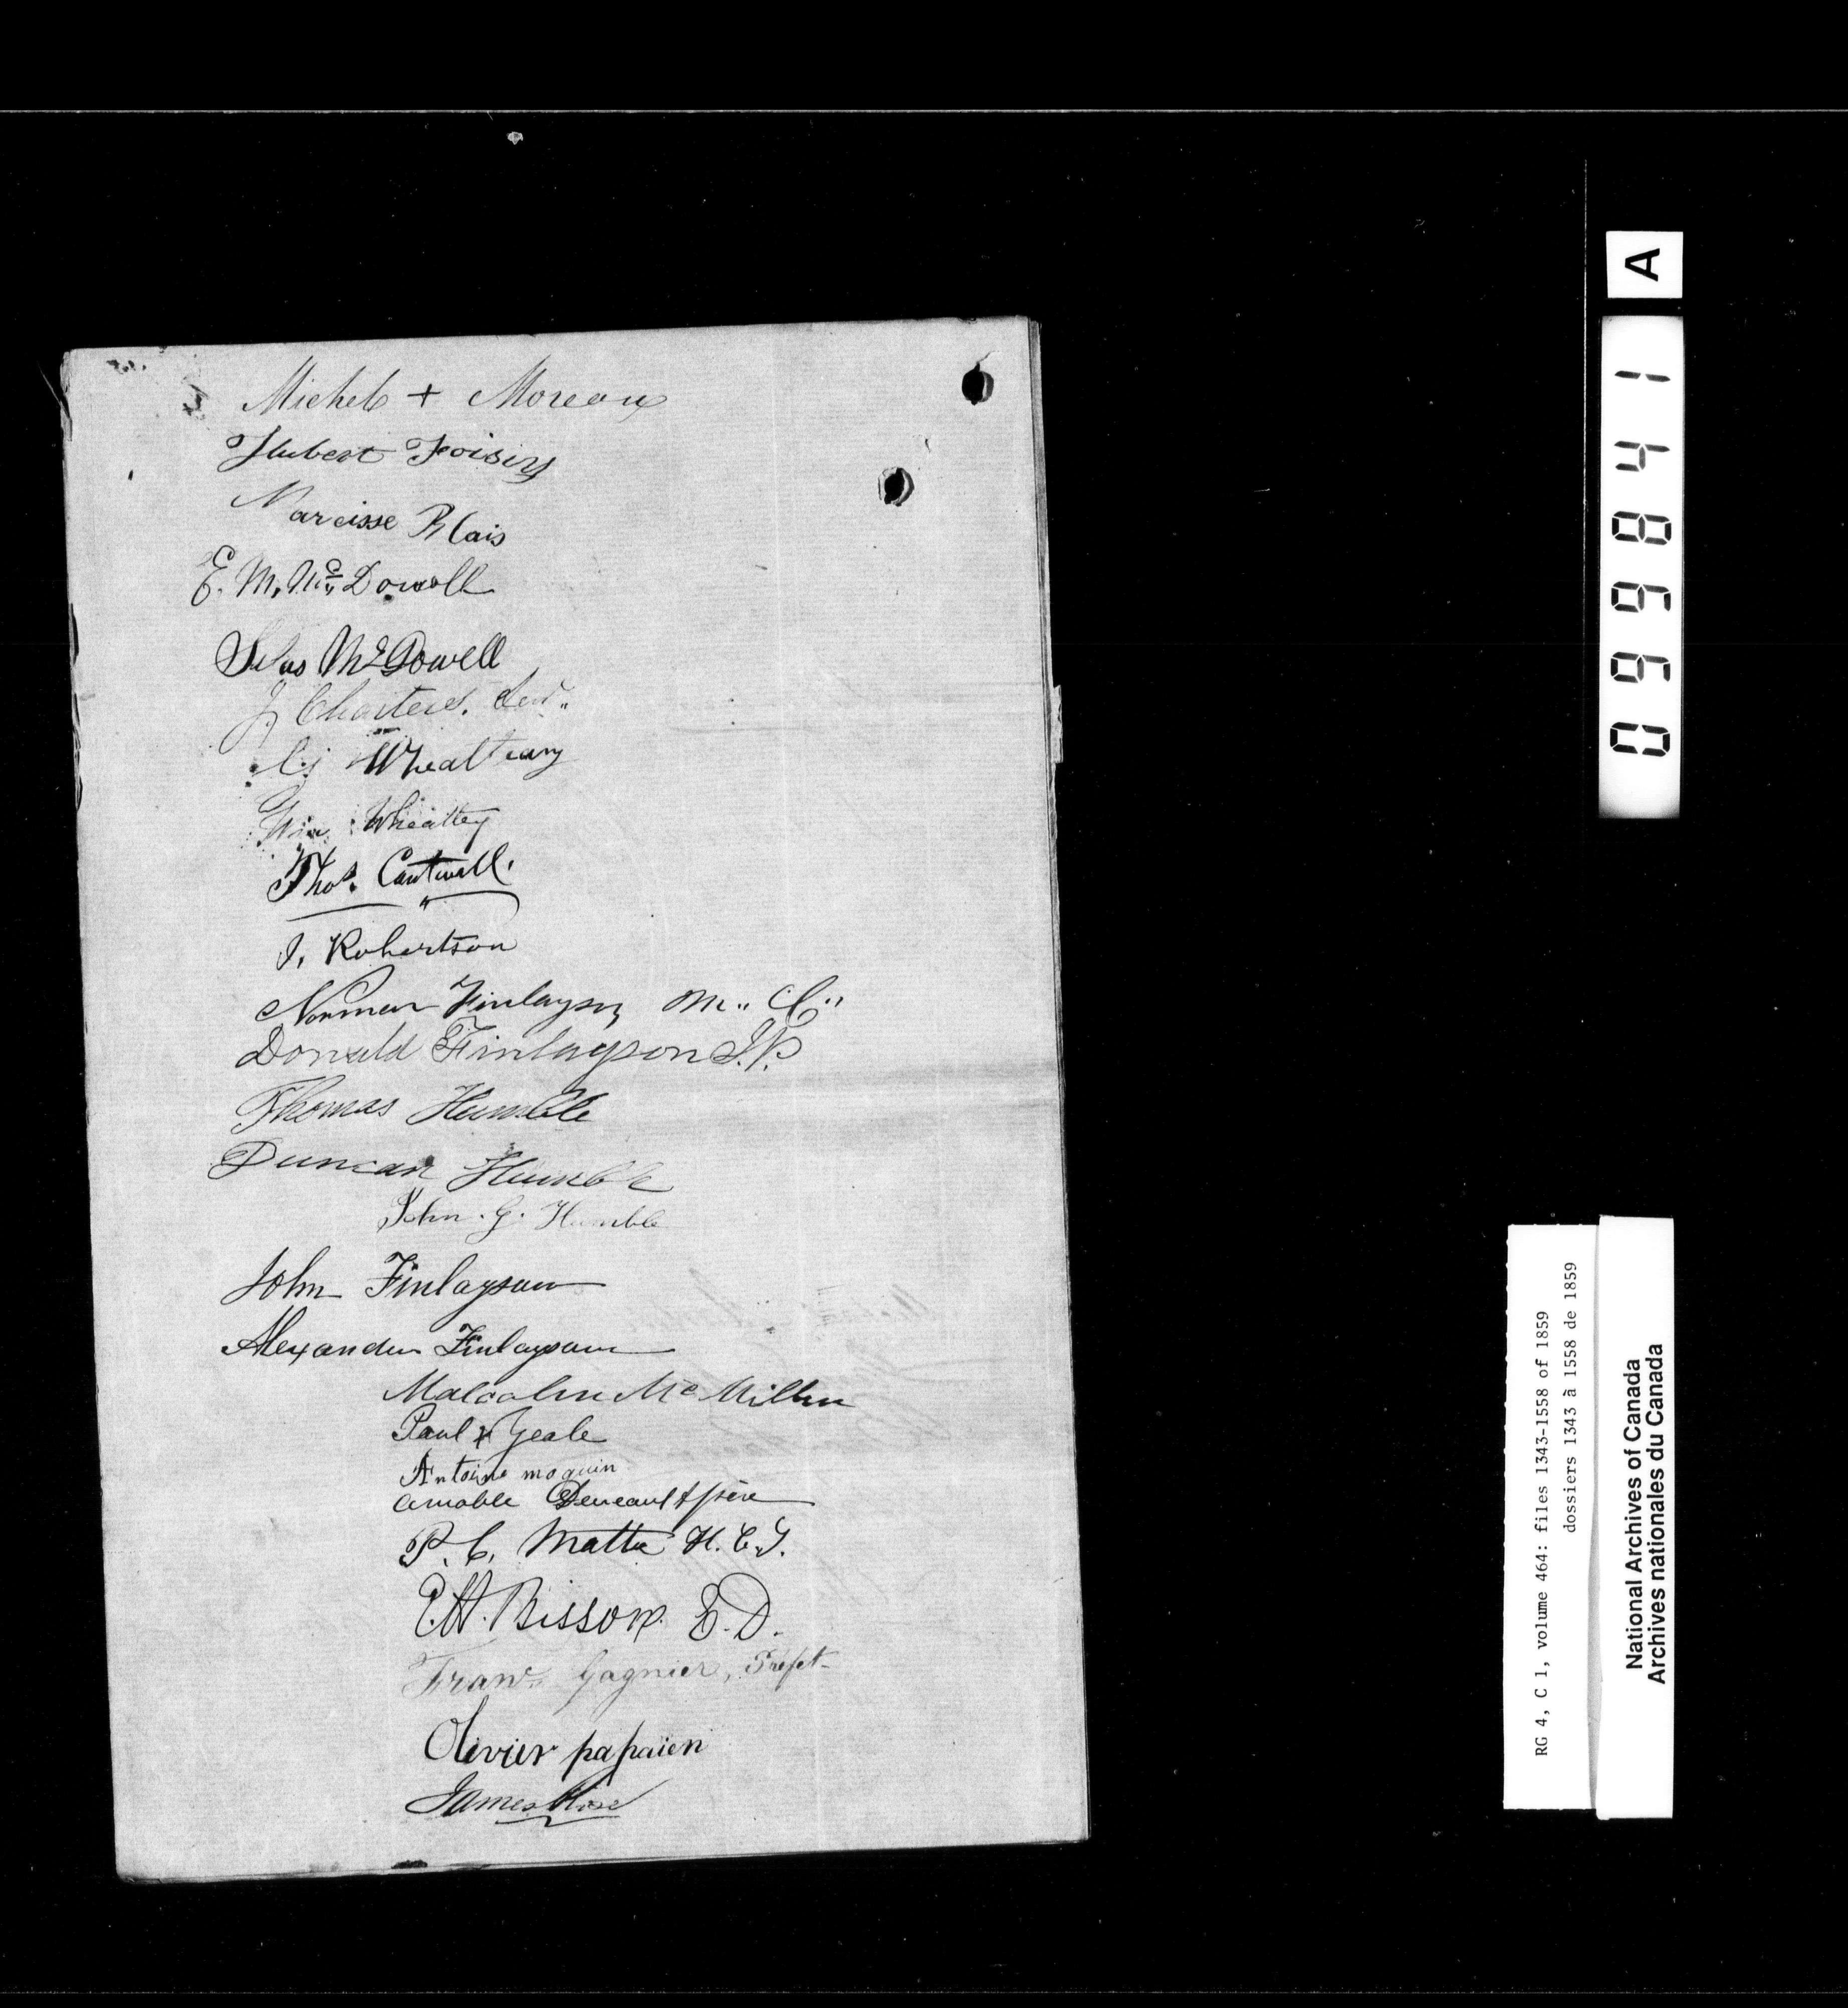 Michel + Moreau
Hubert Foisy
Narcisse Blais
E. M. McDowell
Silas McDowell
J Charters. Senr.
Wheatley
Wm Wheatley
Thos. Cantwell.
J. Robertson
Norman Finlayson M.. C..
Donald Finlayson J.P.
Thomas Humble
Duncan Humble
John. G. Humble
John Finlayson
Alexander Finlayson
Malcolm McMillan
Paul + Yeale
Antoine moquin
amable Deneault père
P. C. Matte H. C. S.
E.H. Bisson E. D.
Frans. Gagnier, Préfet
Olivier papaien
James
A
099841
RG 4, C 1, volume 464: files 1343-1558 of 1859
dossiers 1343 à 1558 de 1859
National Archives of Canada
Archives nationales du Canada